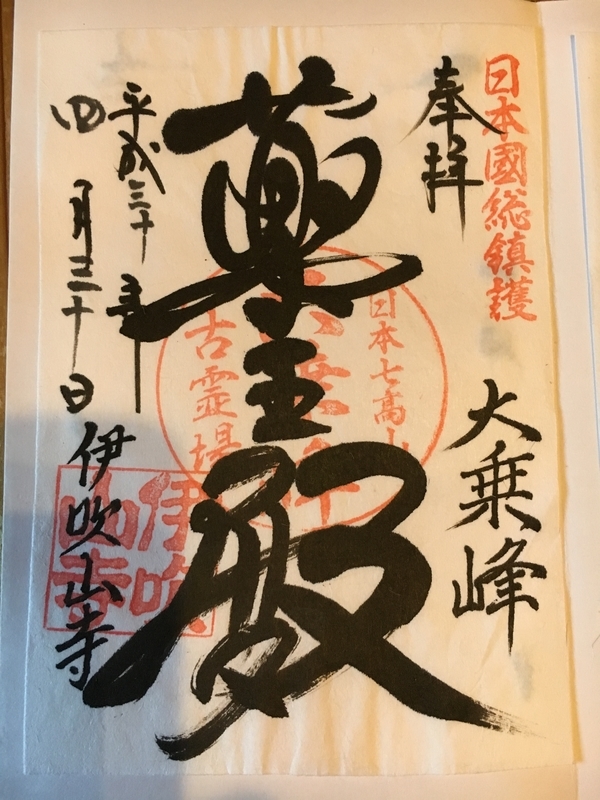 日本國総鎮護
奉拝
大乗峰
薬王殿
日本七高山
古霊場
平成三十年
四月三十日
伊吹山寺
伊吹
山寺